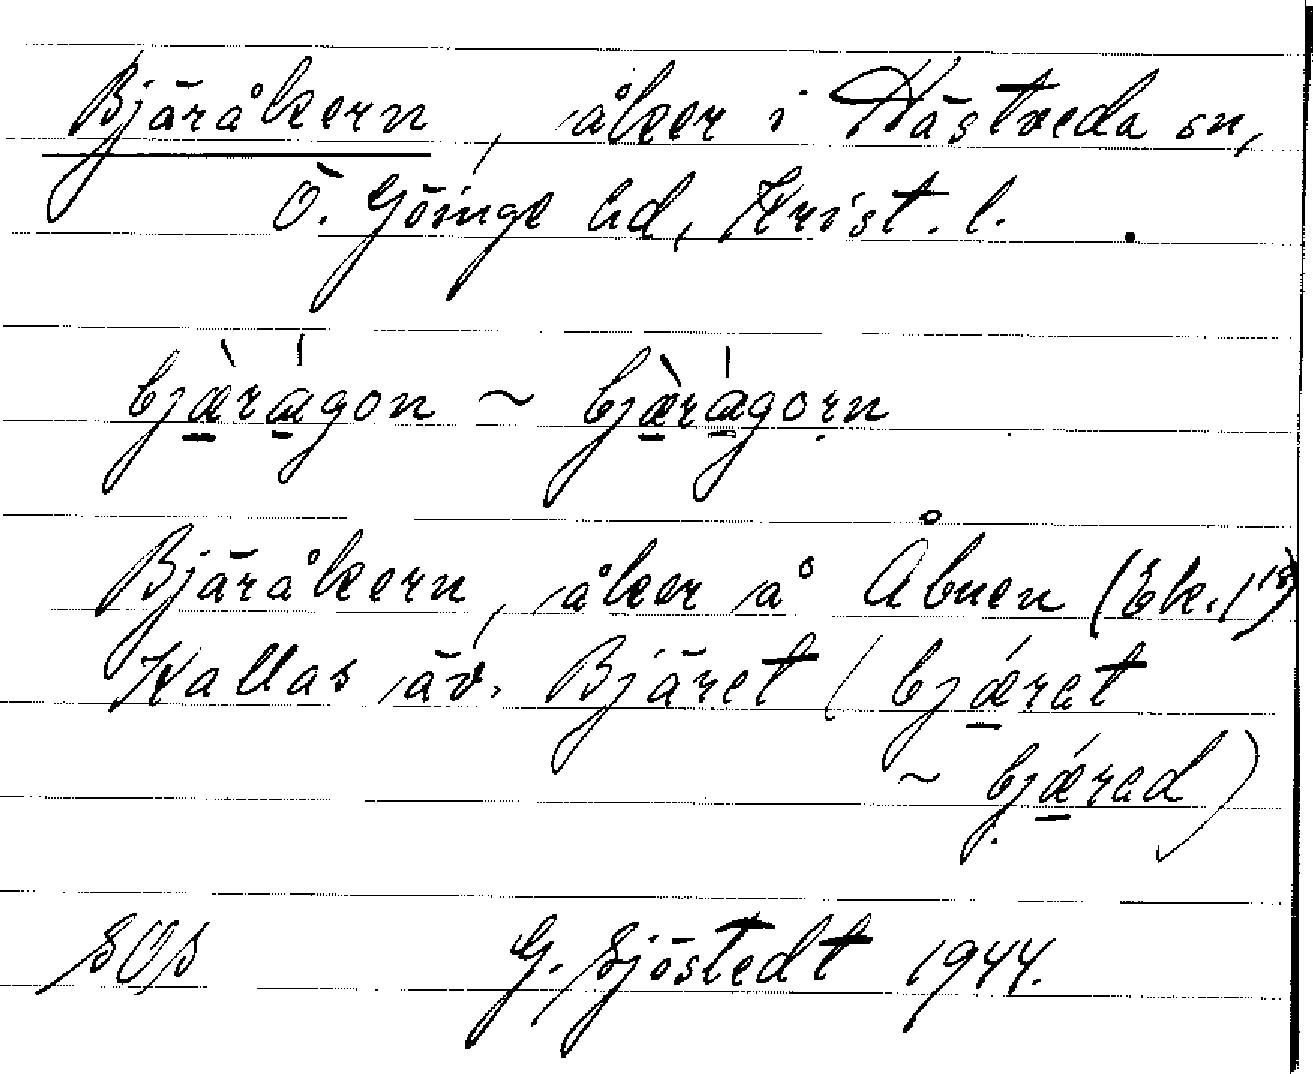 Bjäråkern, åker i Hästveda sn,
Ö. Göinge hd, Krist. l.
bjæ̀rágon ~ bjæ̀rágorn
Bjäråkern, åker å Åbuen (Ek. 1¹³)
Kallas äv. Bjäret (bjǽrat
~ bjǽrad)
SOS G. Sjöstedt 1944.